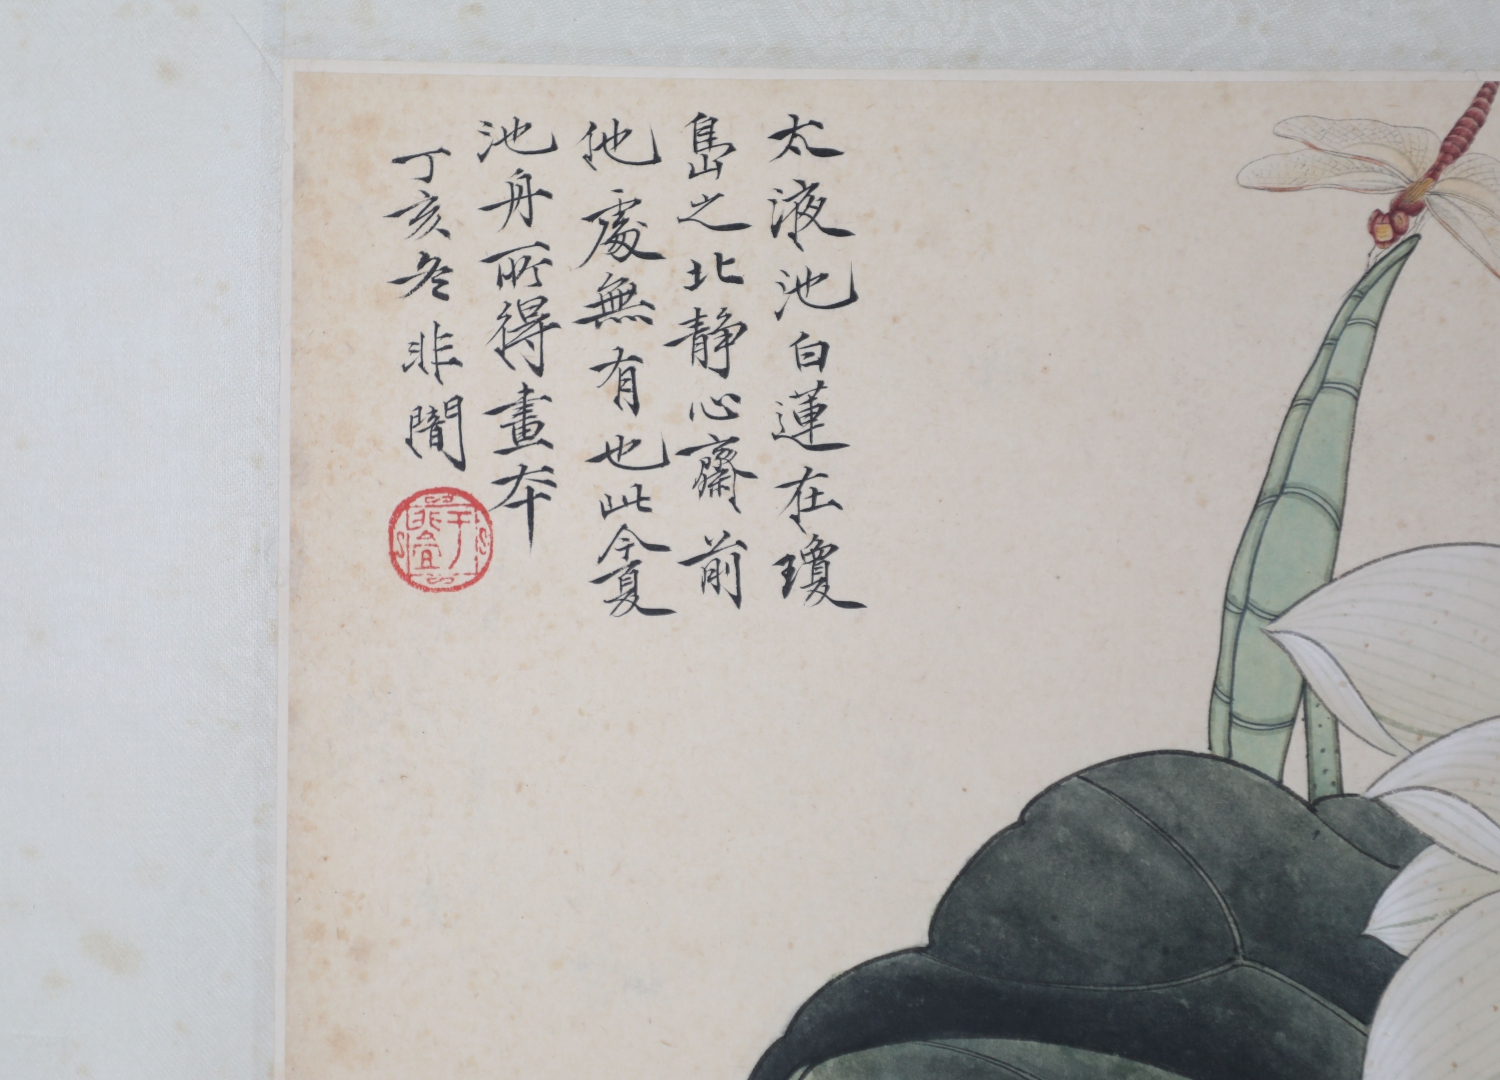 太液池白蓮在瓊
島之北靜心齋前
他處無有也此今夏
池舟所得畫本
丁亥冬非闇
于非闇